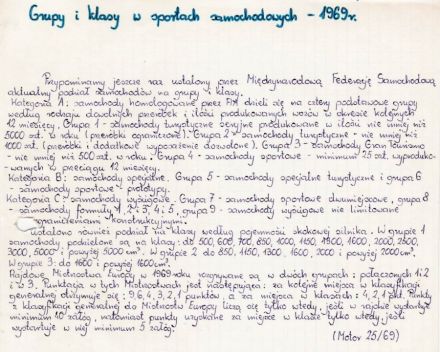 Grupy i klasy w sportach samochodowych - 1969r.
Przypominamy jeszcze raz ustalony przez Międzynarodową Federację Samochodową
aktualny podział samochodów na grupy i klasy.
Kategoria A: samochody homologowane przez FIA dzieli się na cztery podstawowe grupy
według rodzaju dozwolonych przeróbek i ilości produkowanych wozów w okresie kolejnych
12 miesięcy. Grupa 1 - samochody turystyczne seryjne produkowane w ilości nie mniej niż
5000 szt. w roku (przeróbki ograniczone). Grupa 2 - samochody turystyczne - nie mniej niż
1000 szt. (przeróbki i dodatkowe wyposażenie dozwolone). Grupa 3 - samochody Gran Turismo
- nie mniej niż 500 szt. w roku. Grupa 4 - samochody sportowe - minimum 25 szt. wyproduko-
wanych w przeciągu 12 miesięcy.
Kategoria B: samochody specjalne. Grupa 5 - samochody specjalne turystyczne i grupa 6
- samochody sportowe - prototypy.
Kategoria C: samochody wyścigowe. Grupa 7 - samochody sportowe dwumiejscowe, grupa 8
- samochody formuły 1, 2 i 3, 4 i 5, grupa 9 - samochody wyścigowe nie limitowane
ograniczeniami konstrukcyjnymi.
Ustalono również podział na klasy według pojemności skokowej silnika. W grupie 1
samochody podzielone są na klasy: do 500, 600, 700, 850, 1000, 1150, 1300, 1600, 2000, 2500,
3000, 5000 i powyżej 5000 cm³. W grupie 2 do 850, 1150, 1300, 1600, 2000 i powyżej 2000 cm³.
W grupie 3: do 1600 i powyżej 1600 cm³.
Rajdowe Mistrzostwa Europy w 1969 roku rozgrywane są w dwóch grupach: połączonych 1 i 2
i w 3. Punktacja w tych Mistrzostwach jest następująca: za kolejne miejsca w klasyfikacji
generalnej otrzymuje się: 9, 6, 4, 3, 2, 1 punktów, a za miejsca w klasach: 4, 2, 1 pkt. Punkty
z klasyfikacji generalnej do Mistrzostw Europy liczą się tylko wtedy, jeśli w rajdzie wystartuje
minimum załóg, natomiast punkty uzyskane za miejsce w klasie tylko wtedy, jeśli
wystartuje w niej minimum 5 załóg.
(Motor 25/69)